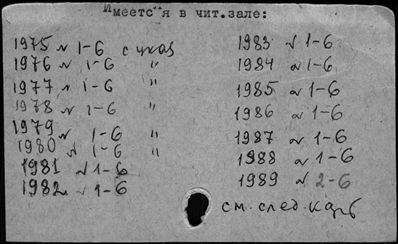 Имеется в чит.зале:
1975 № 1-6 с указ
1976 № 1-6 "
1977 № 1-6 "
1978 № 1-6 "
1979 № 1-6 "
1980 № 1-6 "
1981 № 1-6
1982 № 1-6
1983 № 1-6
1984 № 1-6
1985 № 1-6
1986 № 1-6
1987 № 1-6
1988 № 1-6
1989 № 2-6
см. след. карт